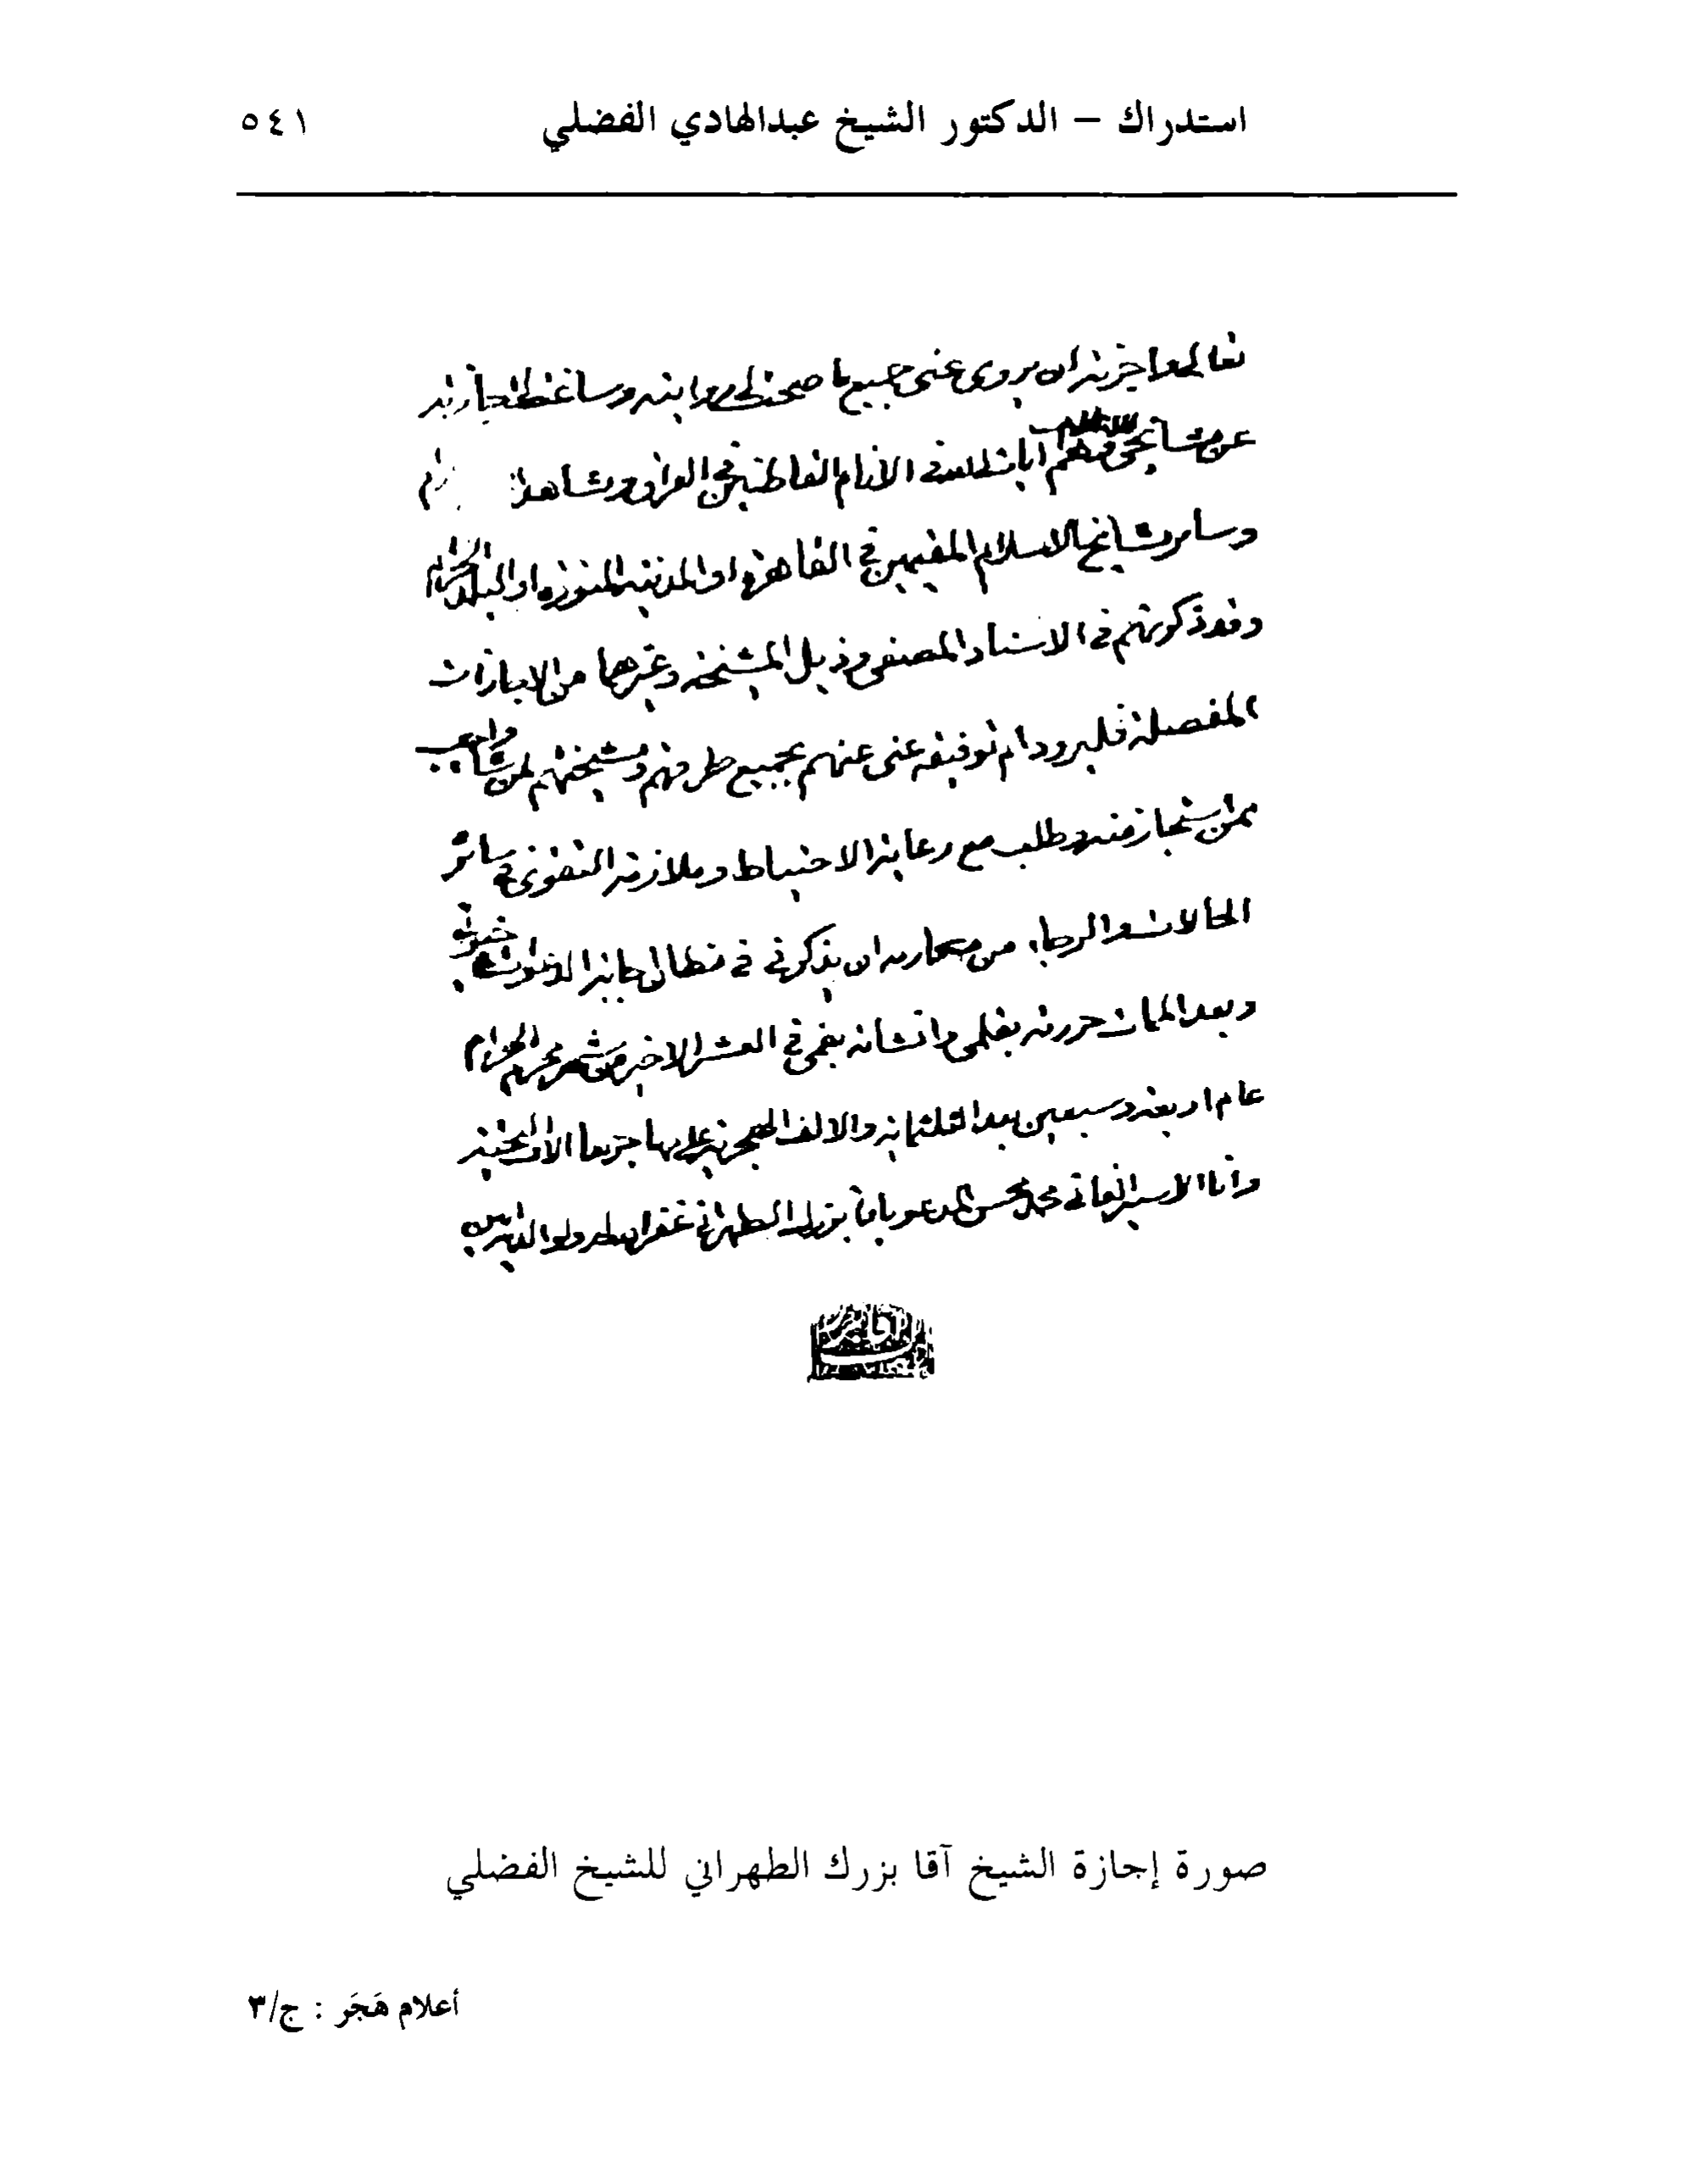 استدراك – الدكتور الشيخ عبدالهادي الفضلي ٥٤١
تعالى واجزته ان يروي عني جميع ما صحت لي روايته وساغت لي اجازته
عن مشايخي منهم آيات الله في الانام القاطنين في العراق ومشاهد
وسائر مشايخ الاسلام المقيمين في القاهرة او المدينة المنورة او البلد الحرام
وقد ذكرتهم في الاسناد المصفى وذيل المشيخة وغيرها من الاجازات
المفصلة فليرو دام توفيقه عني عنهم بجميع طرقهم ومشيختهم لمن شاء واحب
ممن يستجاز منه ويطلب مع رعاية الاحتياط وملازمة التقوى في سائر
الحالات والرجاء من مكارمه ان يذكرني في مظان اجابة الدعوات
وبعد الممات حررته بقلمي وانشأته بفمي في العشر الاخير من شهر محرم الحرام
عام اربعة وسبعين بعد الثلثماية والالف الهجرية على مهاجرها الاف التحية
وانا الاسير الفاني محمد محسن المدعو باقا بزرك الطهراني غفر الله له ولوالديه
صورة إجازة الشيخ آقا بزرك الطهراني للشيخ الفضلي
أعلام هَجَر : ج/٣